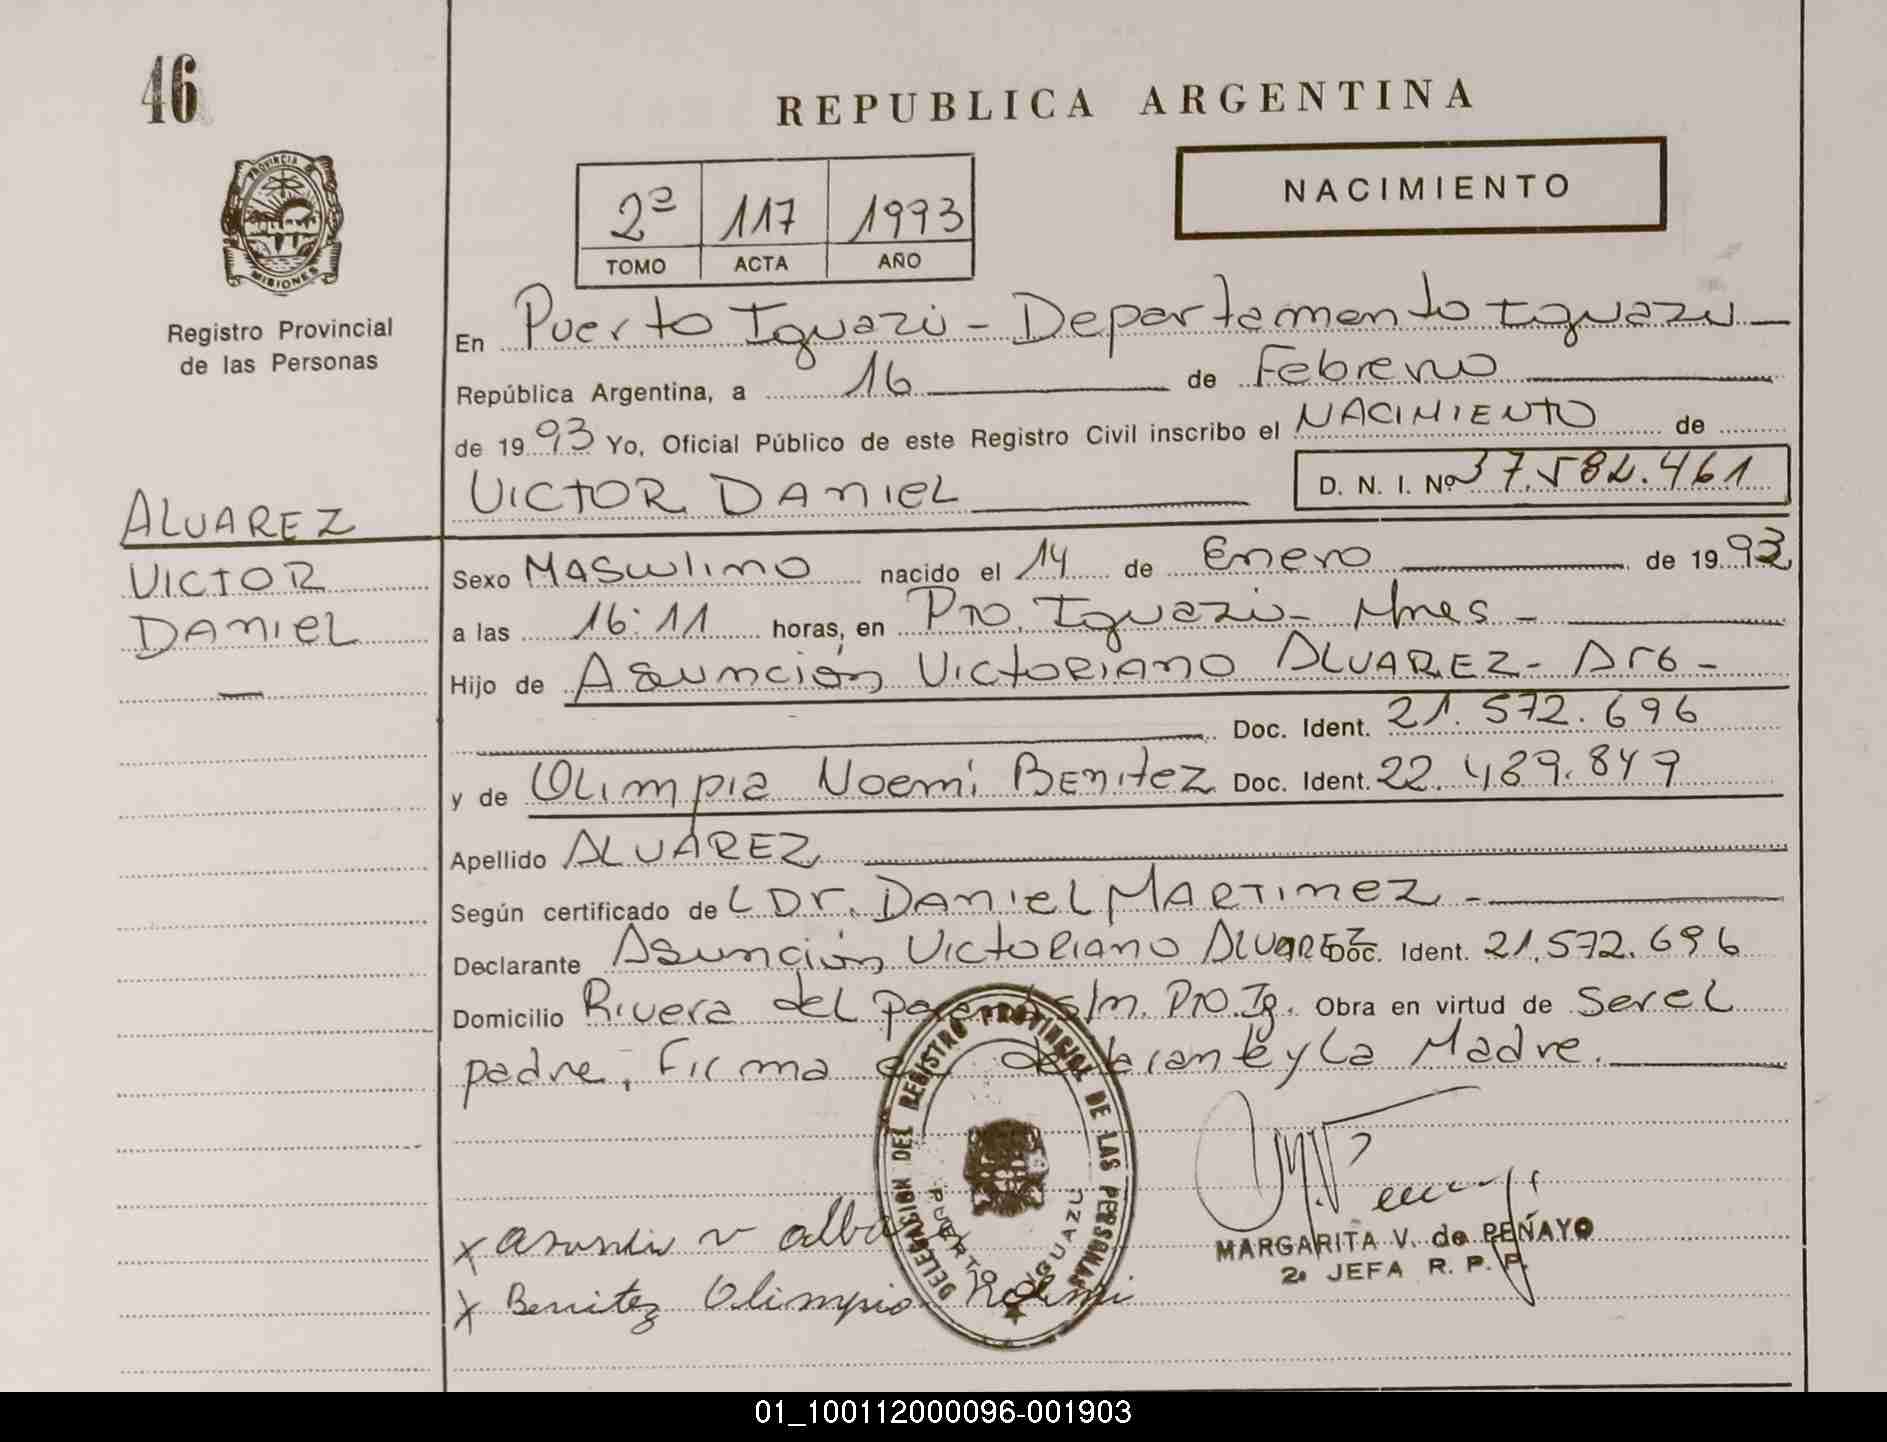 46
REPUBLICA ARGENTINA
NACIMIENTO
2ª 117 1993
TOMO ACTA AÑO
PROVINCIA DE MISIONES
Registro Provincial
de las Personas
En Puerto Iguazú - Departamento Iguazú
República Argentina, a 16 de Febrero
de 1993 Yo, Oficial Público de este Registro Civil inscribo el NACIMIENTO de
VICTOR DANIEL D. N. I. Nº 37.582.461
ALVAREZ
VICTOR
DANIEL
Sexo MASCULINO nacido el 14 de Enero de 1993
a las 16:11 horas, en Pto. Iguazú - Mnes -
Hijo de Asunción VICTORIANO ALVAREZ - Arg -
Doc. Ident. 21.572.696
y de OLIMPIA NOEMÍ BENITEZ Doc. Ident. 22.489.849
Apellido ALVAREZ
Según certificado de L Dr. DANIEL MARTINEZ -
Declarante Asunción VICTORIANO ALVAREZ Doc. Ident. 21.572.696
Domicilio Rivera del paraná s/n. Pto. Ig. Obra en virtud de Ser el
padre, Firma el declarante y la Madre.
DELEGACION DEL REGISTRO PROVINCIAL DE LAS PERSONAS
PUERTO IGUAZU
MARGARITA V. de PEÑAYO
2ª JEFA R. P. P.
x v alba
x Benitez Olimpia Noemi
01_100112000096-001903